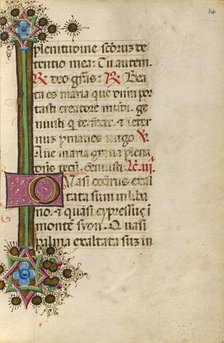 14
plenitudine sctorus de
tentio mea: Tu autem
R Deo grās: R Bea
ta es maria que domi
portasti creatore mūdi. ge
nuisti q te fecit. et eter
num pmanes virgo. V
Aue maria gratia plena
tecū. Lc. iij.
Quasi cedrus exal
tata sum in liba
no. et quasi cypressus i
monte syon. Quasi
palma exaltata sum in